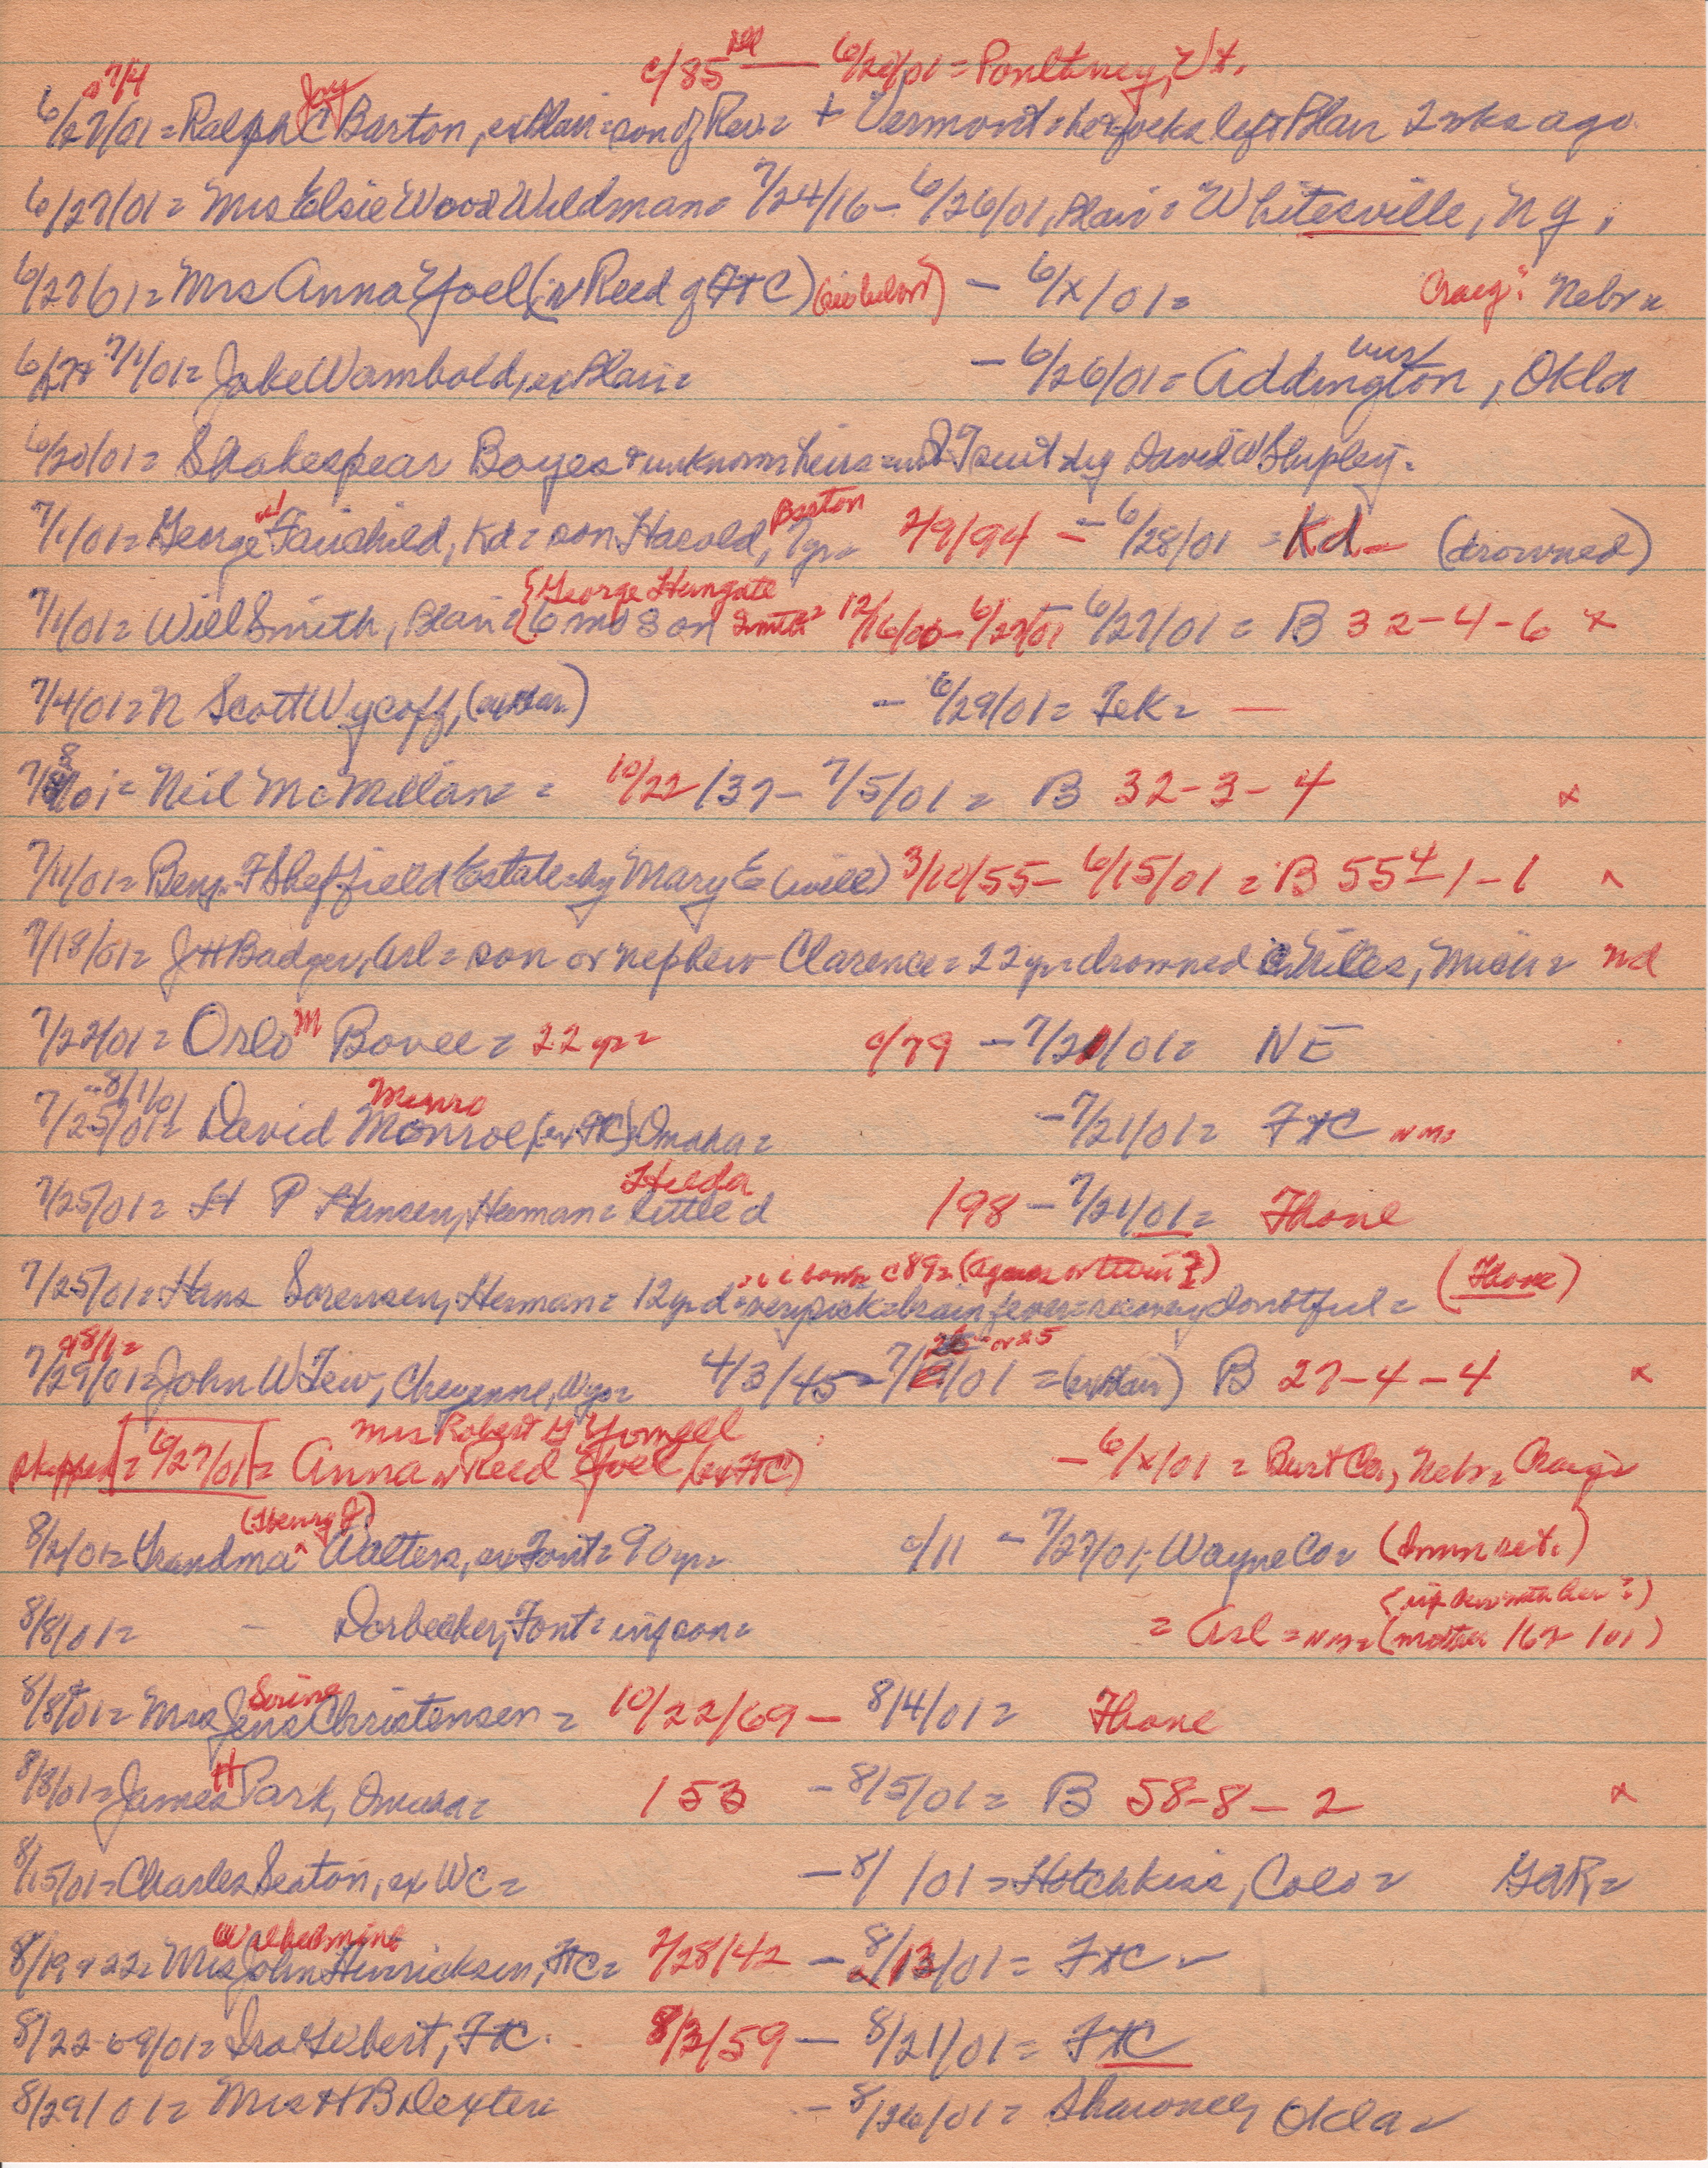 c/85 — 6/20/01 = Poultney, Vt.
& 7/4 Jay
6/27/01 = Ralph C Barton, ex Blair = son of Rev = + Vermont = left Blair 2 wks ago
6/27/01 = Mrs Elsie Wood Wildman = 7/24/16 – 6/26/01, Blair = Whitesville, NY,
6/27/01 = Mrs Anna Yoel (n Reed of FtC) (see below) – 6/x/01 = Craig: Nebr =
6/27 + 7/1/01 = Jake Wambold, ex Blair = – 6/26/01 = Addington, Okla
6/20/01 = Shakespear Boyes + unknown heirs = suit by David W Shipley =
Barton
7/1/01 = George W Fairchild, Kd = son Harold, 7 yr = 2/9/94 – 6/28/01 = Kd – (drowned)
{George Hungate
7/1/01 = Will Smith, Blair = {6 mo son Smith = 12/16/00 – 6/27/01 6/27/01 = B 32-4-6 x
7/4/01 = N Scott Wycoff, (ex Blair) – 6/29/01 = Tek = —
7/8/01 = Neil McMillan = = 10/22/37 – 7/5/01 = B 32-3-4 x
7/11/01 = Benj F Sheffield Estate = by Mary E (will) 3/10/55 – 6/15/01 = B 55 4-1-1 x
7/18/01 = J H Badger, Arl = son or nephew Clarence = 22 yr = drowned @ Niles, Mich = nd
7/22/01 = Orlo M Bovee = 22 yr = c/79 – 7/21/01 = NE
– 8/1/01 Munro
7/25/01 = David Monroe (ex FtC) Omaha = – 7/21/01 = FtC nm =
Hilda
7/25/01 = H P Hansen, Herman = little d 198 – 7/21/01 = Thone
born c89 = (Agnes or twin ?)
7/25/01 = Hans Sorensen, Herman = 12 yr d = very sick = brain fever = recovery doubtful = (Thone)
& 8/1 = 26 or 25
7/29/01 = John W Tew, Cheyenne, Wyo = 4/3/45 – 7/ /01 = (ex Blair) B 27-4-4 x
Mrs Robert H Youngel
skipped [= 6/27/01] = Anna n Reed Yoel (ex FtC) – 6/x/01 = Burt Co, Nebr = Craig =
(Henry J)
8/2/01 = Grandma ^ Walters, ex Font = 90 yr = c/11 – 7/27/01, Wayne Co =
8/8/01 = – Dorbecker, Font = inf son = = Arl = nm = (mother 162 101)
Serine
8/8/01 = Mrs Jens Christensen = 10/22/69 – 8/4/01 = Thone
8/8/01 = James H Park, Omaha = 153 – 8/5/01 = B 58-8-2 x
8/15/01 = Charles Seaton, ex WC = – 8/ /01 = Hotchkiss, Colo = GAR =
Wilhelmine
8/19 & 22 = Mrs John Henricksen, FtC = 2/28/42 – 8/13/01 = FtC
8/22-69/01 = Ira Hebert, FtC. 8/3/59 – 8/21/01 = FtC
8/29/01 = Mrs H B Dexter – 8/26/01 = Shawnee, Okla =